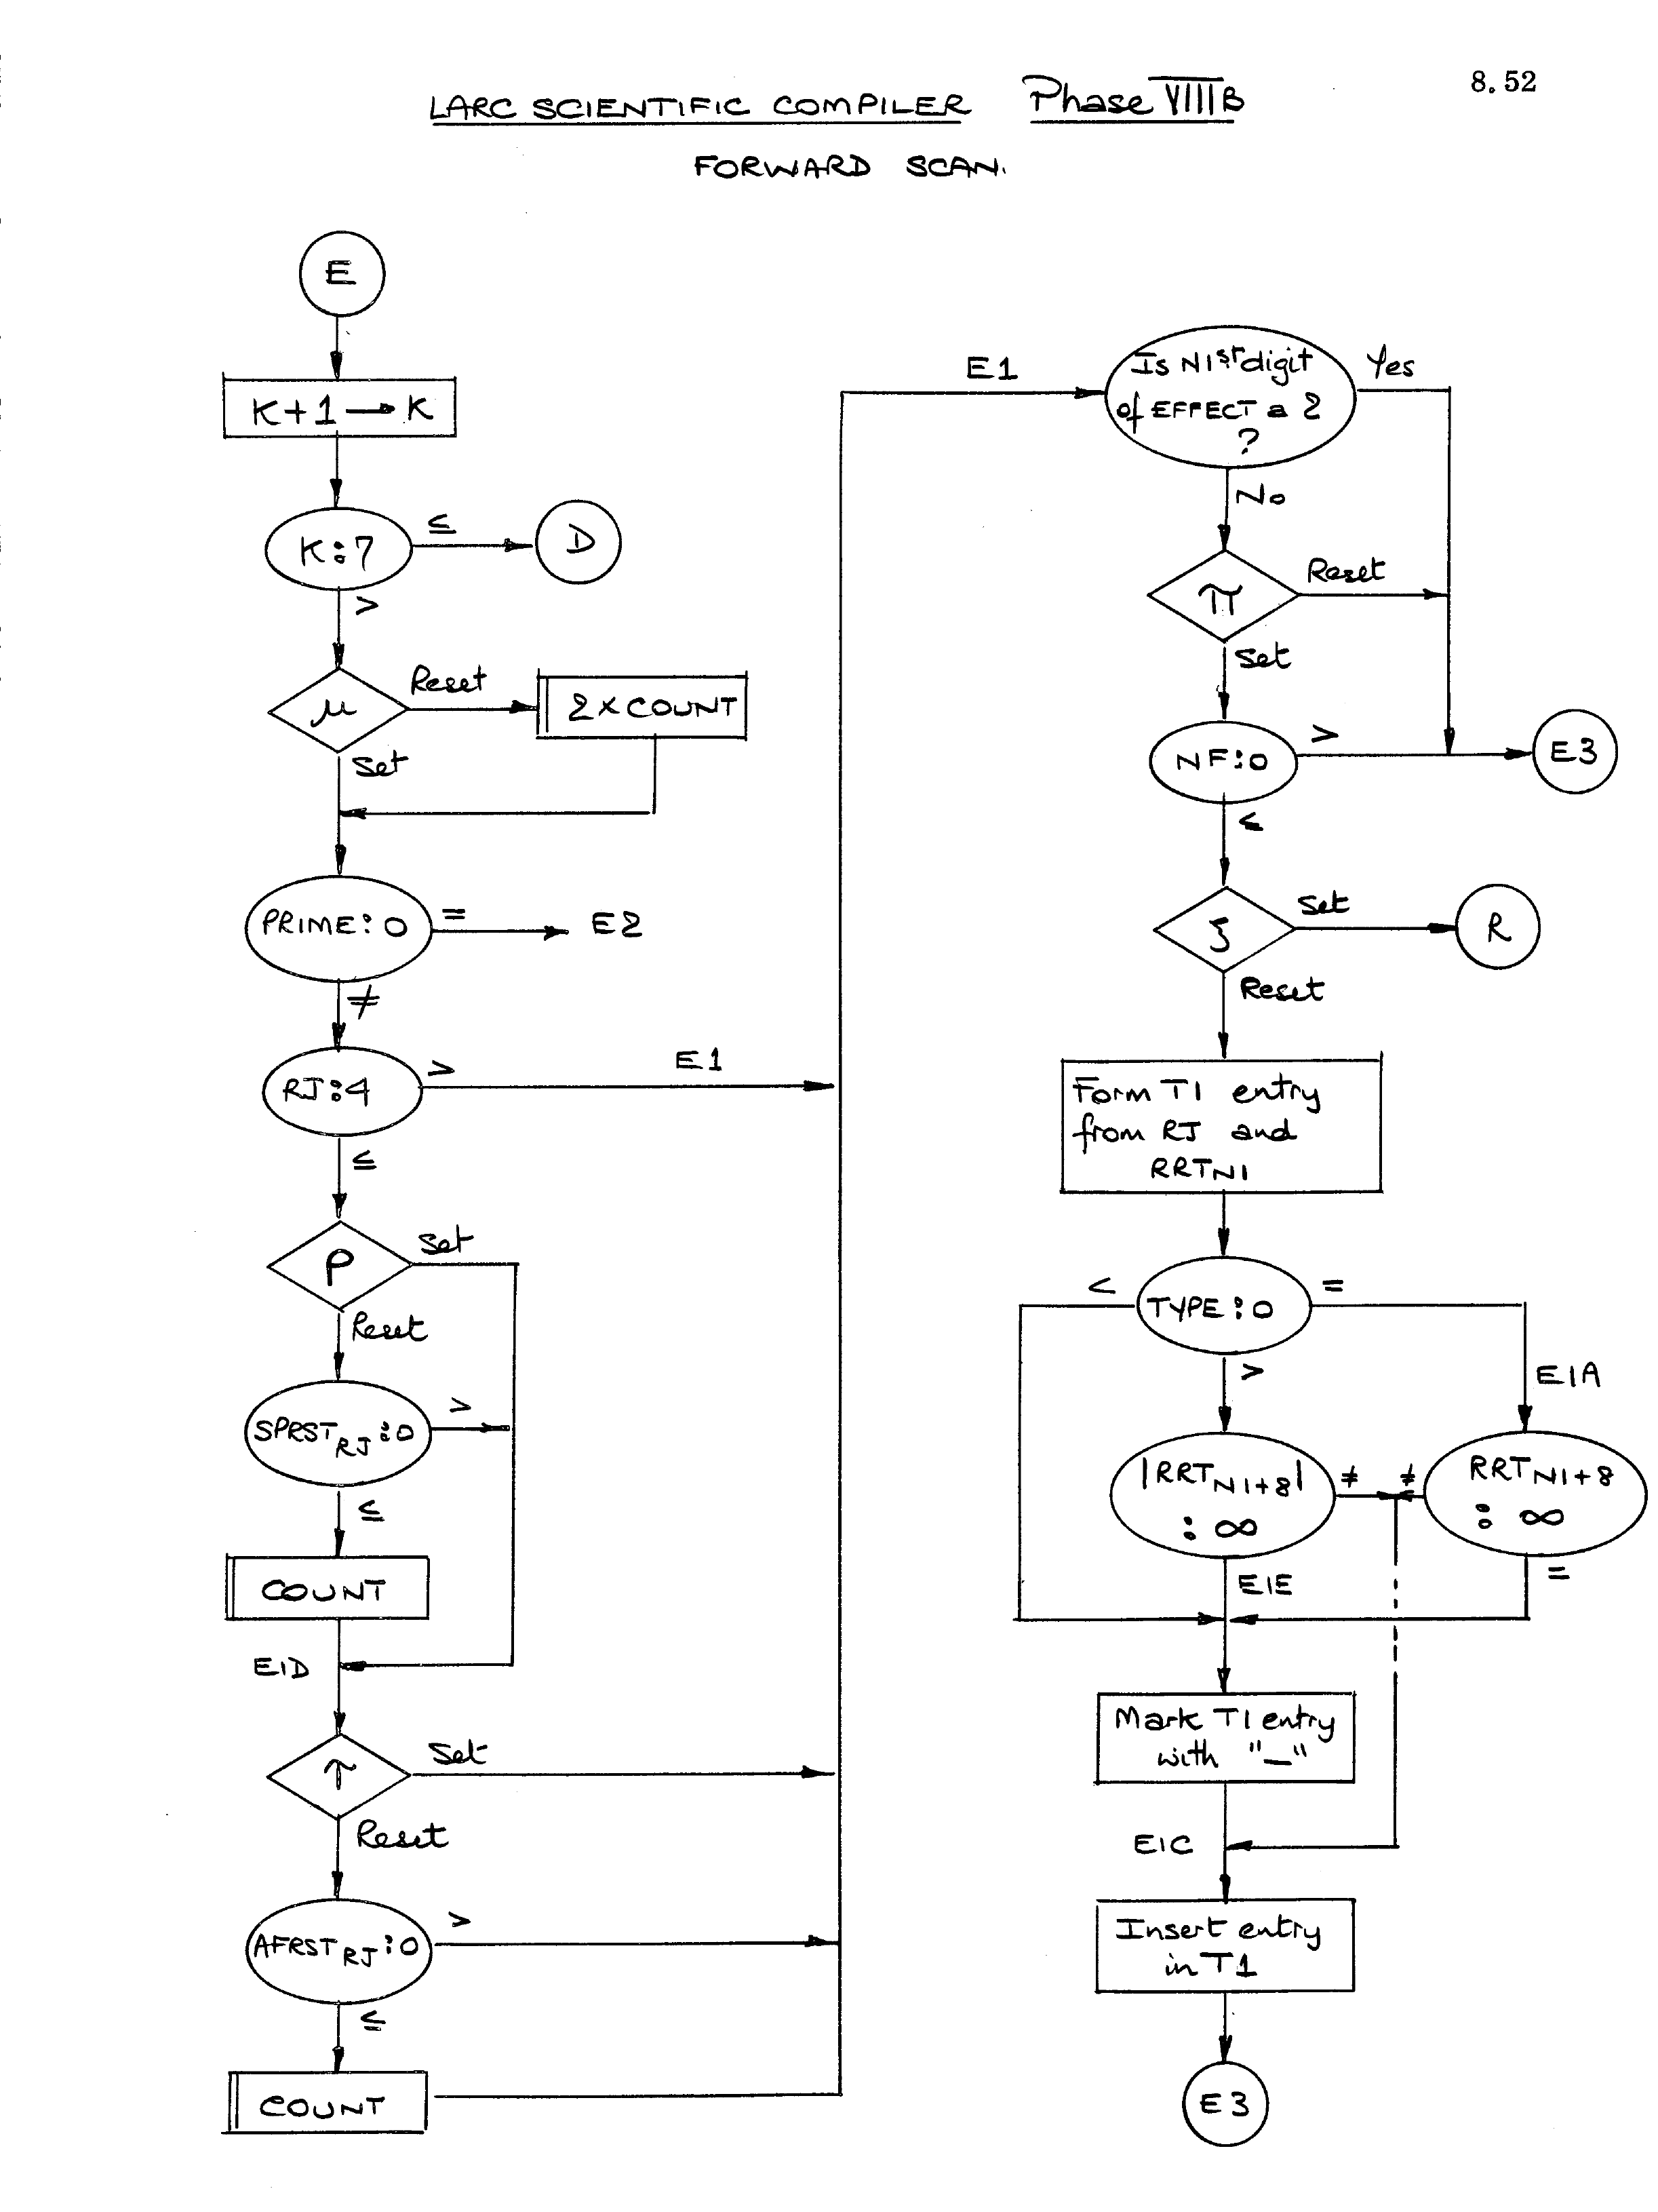 8.52
LARC SCIENTIFIC COMPILER Phase VIIIB
FORWARD SCAN.
E
K+1 → K
K:7
≤
D
>
μ
Reset
2 × COUNT
Set
PRIME:0
=
E2
≠
RJ:4
>
E1
≤
ρ
Set
Reset
SPRST RJ:0
>
≤
COUNT
E1D
τ
Set
Reset
AFRST RJ:0
>
≤
COUNT
E1
Is N1st digit
of EFFECT a 2
?
Yes
No
π
Reset
Set
NF:0
>
E3
≤
Set
R
Reset
Form T1 entry
from RJ and
RRT N1
<
TYPE:0
=
>
E1A
|RRT N1+8|
: ∞
≠
≠
RRT N1+8
: ∞
E1E
=
Mark T1 entry
with "—"
E1C
Insert entry
in T1
E3